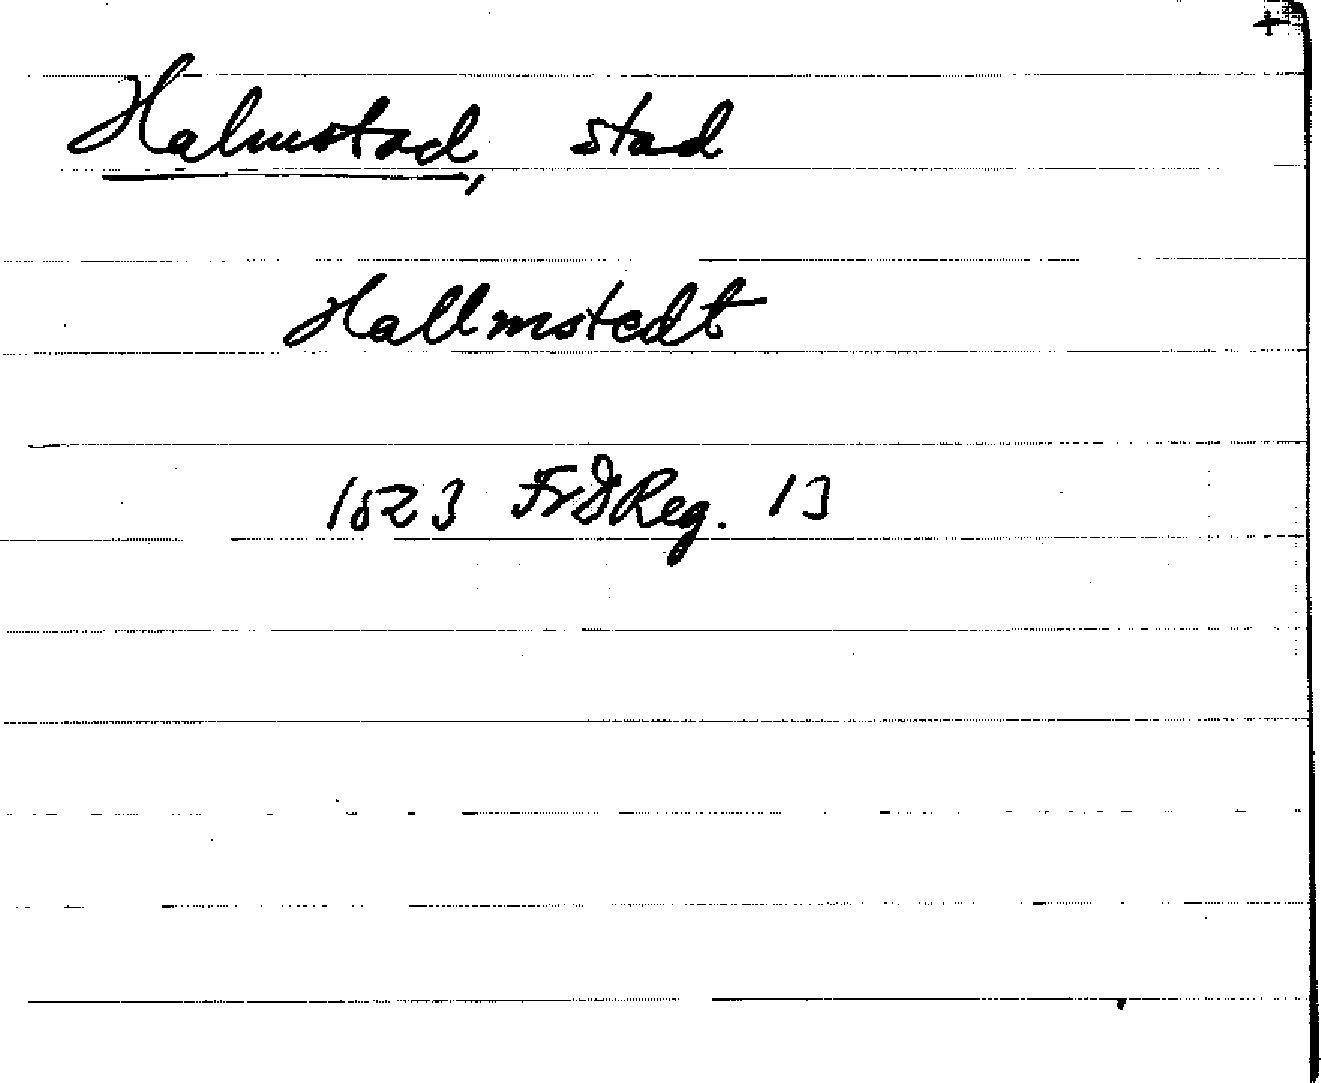 +
Halmstad, stad
Hallmstedt
1523 FrDReg. 13